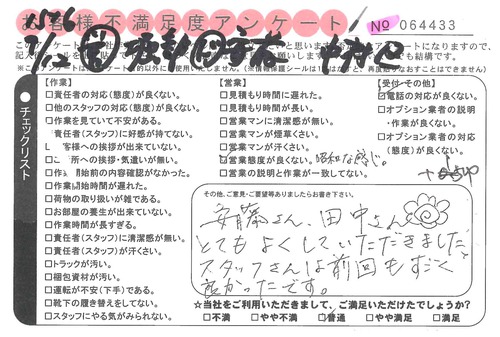 お客様不満足度アンケート
No 064433
【作業】
□責任者の対応(態度)が良くない。
□他のスタッフの対応(態度)が良くない。
□作業を見ていて不安がある。
責任者(スタッフ)に好感が持てない。
客様への挨拶が出来ていない。
所への挨拶・気遣いが無い。
□作 始前の内容確認がなかった。
□作業開始時間が遅れた。
□荷物の取り扱いが雑である。
□お部屋の養生が出来ていない。
□作業時間が長すぎる。
□責任者(スタッフ)に清潔感が無い。
□責任者(スタッフ)が汗くさい。
□トラックが汚い。
□梱包資材が汚い。
□運転が不安(下手)である。
□靴下の履き替えをしてない。
□スタッフにやる気がみられない。
●チェックリスト
【営業】
□見積もり時間に遅れた。
□見積もり時間が長い。
□営業マンに清潔感が無い。
□営業マンが煙草くさい。
□営業マンが汗くさい。
□営業態度が良くない。昭和な感じ。
□営業の説明と作業が一致してない。
【受付・その他】
□電話の対応が良くない。
□オプション業者の説明
・作業が良くない。
□オプション業者の対応
(態度)が良くない。
その他、ご意見・ご要望等ありましたらお書き下さい。
安藤さん、田中さん
とてもよくしていただきました
スタッフさんは前回もすごく
良かったです。
☆当社をご利用いただきまして、ご満足いただけたでしょうか?
□不満 □やや不満 □普通 □やや満足 □満足